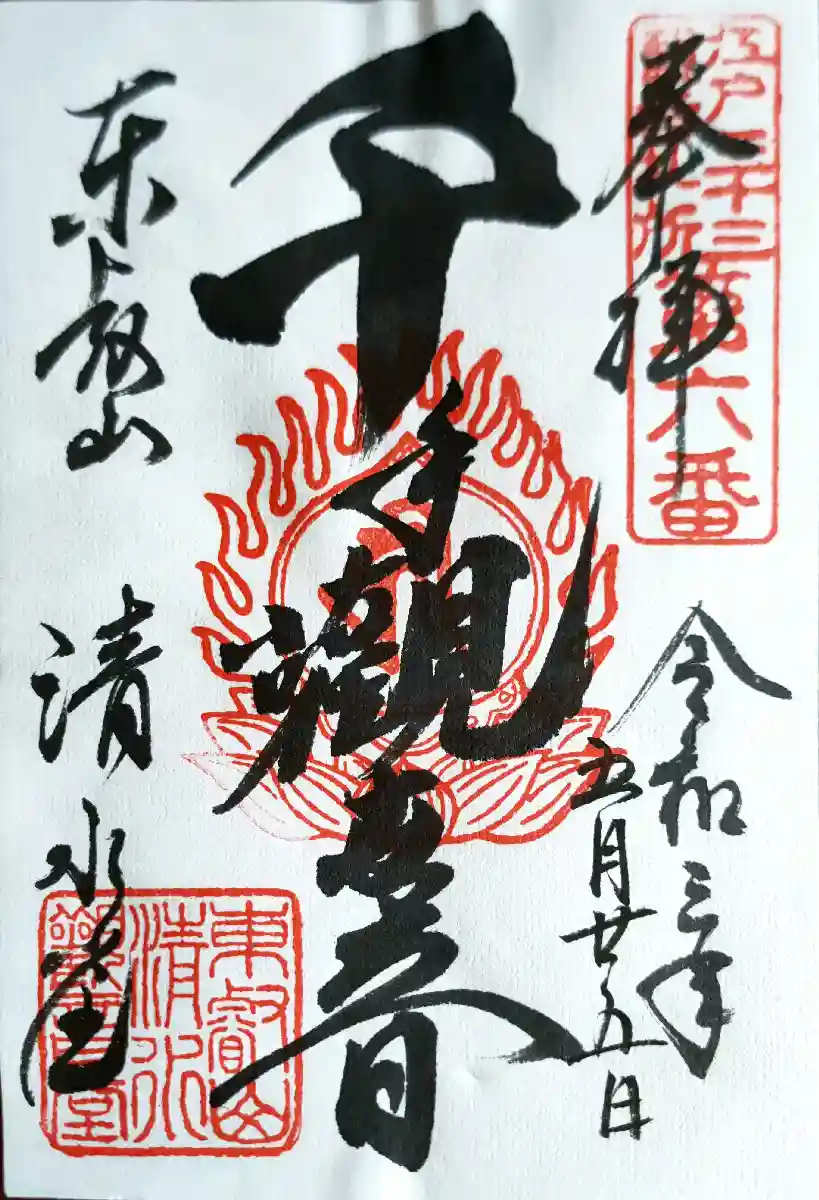 奉拝
江戸三十三
観音札所第六番
令和三年
五月廿五日
千手観音
喜
東叡山
清水堂
東叡山
清水
観音堂